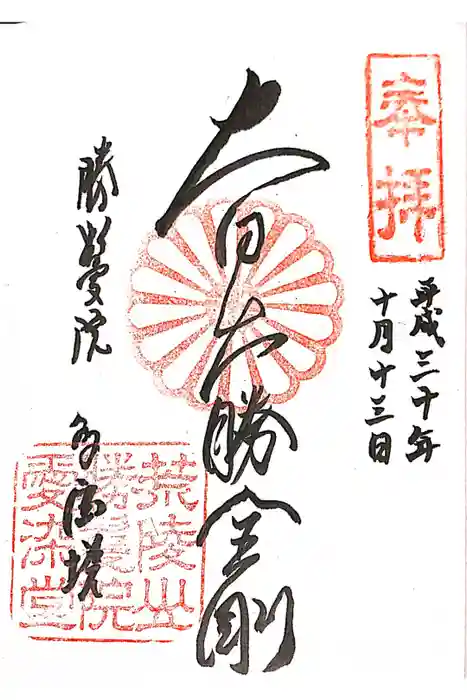 奉拝
平成三十年
十月十三日
大日大勝金剛
勝鬘院 多宝塔
荒陵山
勝鬘院
愛染堂